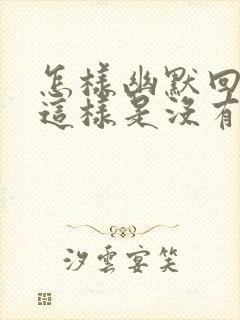 怎樣幽默回
這樣是沒有
汐雲宴笑